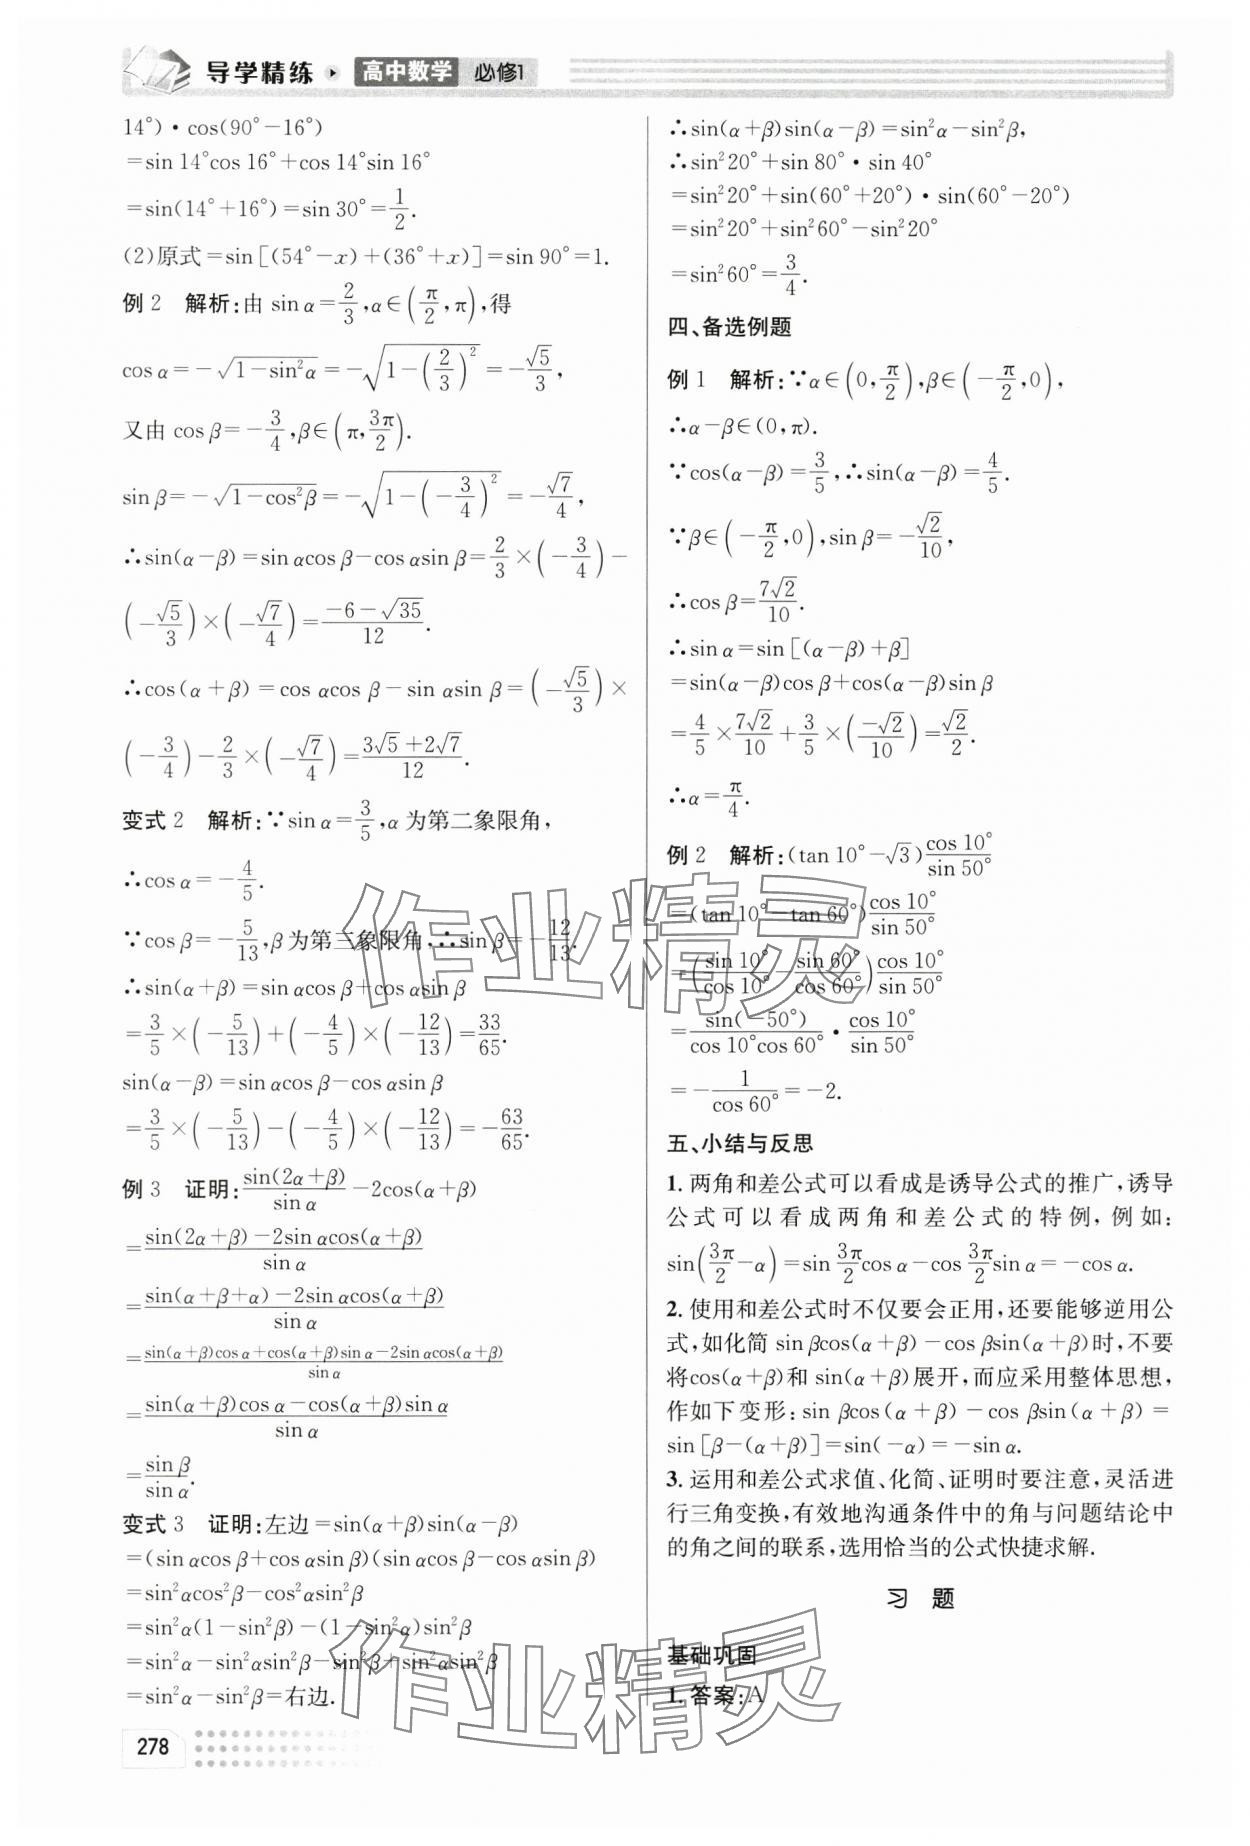 导学精练 高中数学 必修1
14°)·cos(90°-16°)
=sin 14°cos 16°+cos 14°sin 16°
=sin(14°+16°)=sin 30°=1/2.
(2)原式=sin[(54°-x)+(36°+x)]=sin 90°=1.
例 2 解析:由 sin α=2/3,α∈(π/2,π),得
cos α=-√(1-sin²α)=-√(1-(2/3)²)=-√5/3,
又由 cos β=-3/4,β∈(π,3π/2).
sin β=-√(1-cos²β)=-√(1-(-3/4)²)=-√7/4,
∴sin(α-β)=sin αcos β-cos αsin β=2/3×(-3/4)-
(-√5/3)×(-√7/4)=(-6-√35)/12.
∴cos(α+β)=cos αcos β-sin αsin β=(-√5/3)×
(-3/4)-2/3×(-√7/4)=(3√5+2√7)/12.
变式 2 解析:∵sin α=3/5,α 为第二象限角,
∴cos α=-4/5.
∵cos β=-5/13,β 为第三象限角,∴sin β=-12/13.
∴sin(α+β)=sin αcos β+cos αsin β
=3/5×(-5/13)+(-4/5)×(-12/13)=33/65.
sin(α-β)=sin αcos β-cos αsin β
=3/5×(-5/13)-(-4/5)×(-12/13)=-63/65.
例 3 证明:sin(2α+β)/sin α-2cos(α+β)
=(sin(2α+β)-2sin αcos(α+β))/sin α
=(sin(α+β+α)-2sin αcos(α+β))/sin α
=(sin(α+β)cos α+cos(α+β)sin α-2sin αcos(α+β))/sin α
=(sin(α+β)cos α-cos(α+β)sin α)/sin α
=sin β/sin α.
变式 3 证明:左边=sin(α+β)sin(α-β)
=(sin αcos β+cos αsin β)(sin αcos β-cos αsin β)
=sin²αcos²β-cos²αsin²β
=sin²α(1-sin²β)-(1-sin²α)sin²β
=sin²α-sin²αsin²β-sin²β+sin²αsin²β
=sin²α-sin²β=右边.
278
∴sin(α+β)sin(α-β)=sin²α-sin²β,
∴sin²20°+sin 80°·sin 40°
=sin²20°+sin(60°+20°)·sin(60°-20°)
=sin²20°+sin²60°-sin²20°
=sin²60°=3/4.
四、备选例题
例 1 解析:∵α∈(0,π/2),β∈(-π/2,0),
∴α-β∈(0,π).
∵cos(α-β)=3/5,∴sin(α-β)=4/5.
∵β∈(-π/2,0),sin β=-√2/10,
∴cos β=7√2/10.
∴sin α=sin[(α-β)+β]
=sin(α-β)cos β+cos(α-β)sin β
=4/5×7√2/10+3/5×(-√2/10)=√2/2.
∴α=π/4.
例 2 解析:(tan 10°-√3)cos 10°/sin 50°
=(tan 10°-tan 60°)cos 10°/sin 50°
=(sin 10°/cos 10°-sin 60°/cos 60°)cos 10°/sin 50°
=sin(-50°)/(cos 10°cos 60°)·cos 10°/sin 50°
=-1/cos 60°=-2.
五、小结与反思
1. 两角和差公式可以看成是诱导公式的推广,诱导
公式可以看成两角和差公式的特例,例如:
sin(3π/2-α)=sin 3π/2cos α-cos 3π/2sin α=-cos α.
2. 使用和差公式时不仅要会正用,还要能够逆用公
式,如化简 sin βcos(α+β)-cos βsin(α+β)时,不要
将cos(α+β)和 sin(α+β)展开,而应采用整体思想,
作如下变形:sin βcos(α+β)-cos βsin(α+β)=
sin[β-(α+β)]=sin(-α)=-sin α.
3. 运用和差公式求值、化简、证明时要注意,灵活进
行三角变换,有效地沟通条件中的角与问题结论中
的角之间的联系,选用恰当的公式快捷求解.
习 题
基础巩固
1. 答案:A
作业精灵
作业精灵